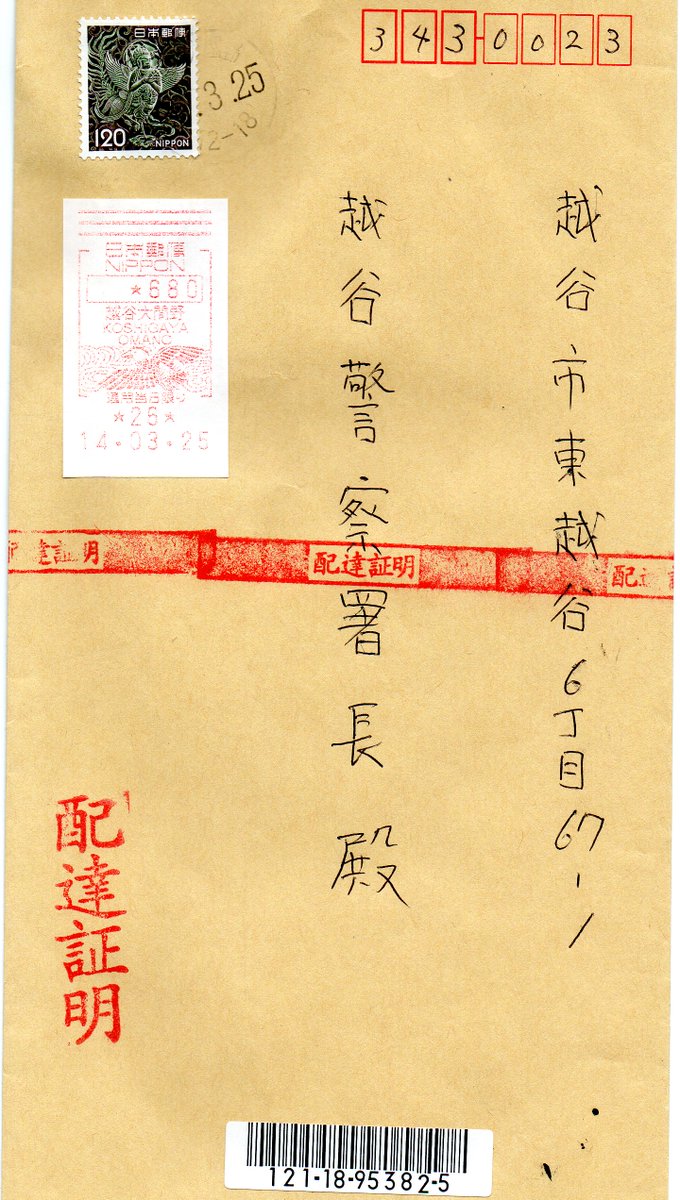 日本郵便
120
NIPPON
.3.25
12-18
343-0023
越谷市東越谷6丁目67-1
越谷警察署長殿
日本郵便
NIPPON
*680
越谷大間野
KOSHIGAYA
OMANO
*26*
14.03.25
配達証明
配達証明
配達証明
121-18-95382-5